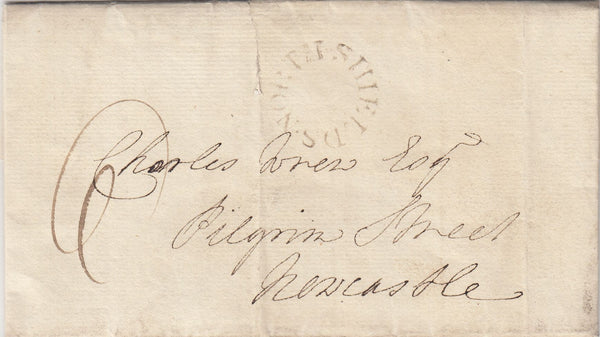 NORTH·SHIELDS
6
Charles Wren Esqr
Pilgrim Street
Newcastle